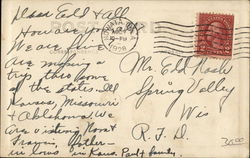 Dear Eld & All
How are you
We are fine
are making a
trip thro some
of the states. Ill
Kansas, Missouri
& Oklahoma. We
are visiting Nora
Francis, Arthur
in Kans. Paul & family
POST CARD
1928
Mr. Eld
Spring Valley
Wis
R. F. D.
2